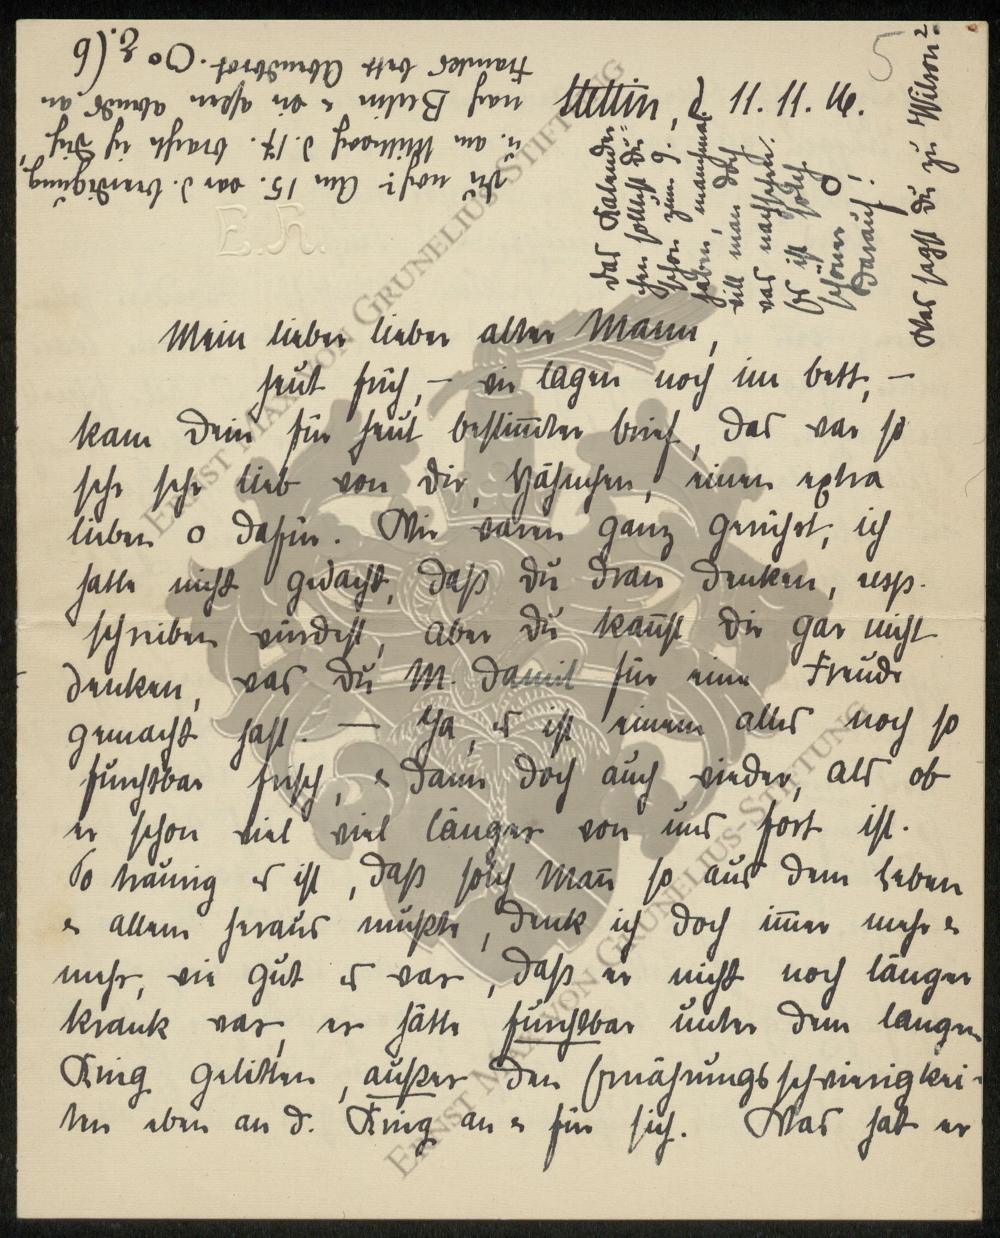 5
Stettin, d 11. 11. 16.
Das Kalender-
chen solltest Du
schon zum 9.
haben, manchmal
will man doch
was nachsehen.
Es ist solch
schöner O
darauf!
Was sagst Du zu Wilson?
E.K.
Mein lieber lieber alter Mann,
heut früh, – wir lagen noch im bett, –
kam Dein für heut bestimmter brief, das war so
sehr sehr lieb von Dir, Hähnchen, einen extra
lieben O dafür. Wir waren ganz gerührt, ich
hatte nicht gedacht, daß Du dran denken, resp.
schreiben würdest, aber Du kannst Dir gar nicht
denken, was Du M. damit für eine Freude
gemacht hast. — Ja, es ist einem alles noch so
furchtbar frisch, & dann doch auch wieder, als ob
er schon viel viel länger von uns fort ist.
So traurig es ist, daß solch Mann so aus dem Leben
& allem heraus mußte, denk ich doch immer mehr &
mehr, wie gut es war, daß er nicht noch länger
krank war, er hätte furchtbar unter dem langen
Krieg gelitten, außer den Ernährungsschwierigkei-
ten eben an d. Krieg an & für sich. Was hat er
Die noch? Am 15. war d. Beerdigung,
u. am Mittwoch d. 17. brachte ich Dich
nach Berlin & wir aßen abends an
Abendbrot.
ERNST MAX VON GRUNELIUS-STIFTUNG
ERNST MAX VON GRUNELIUS-STIFTUNG